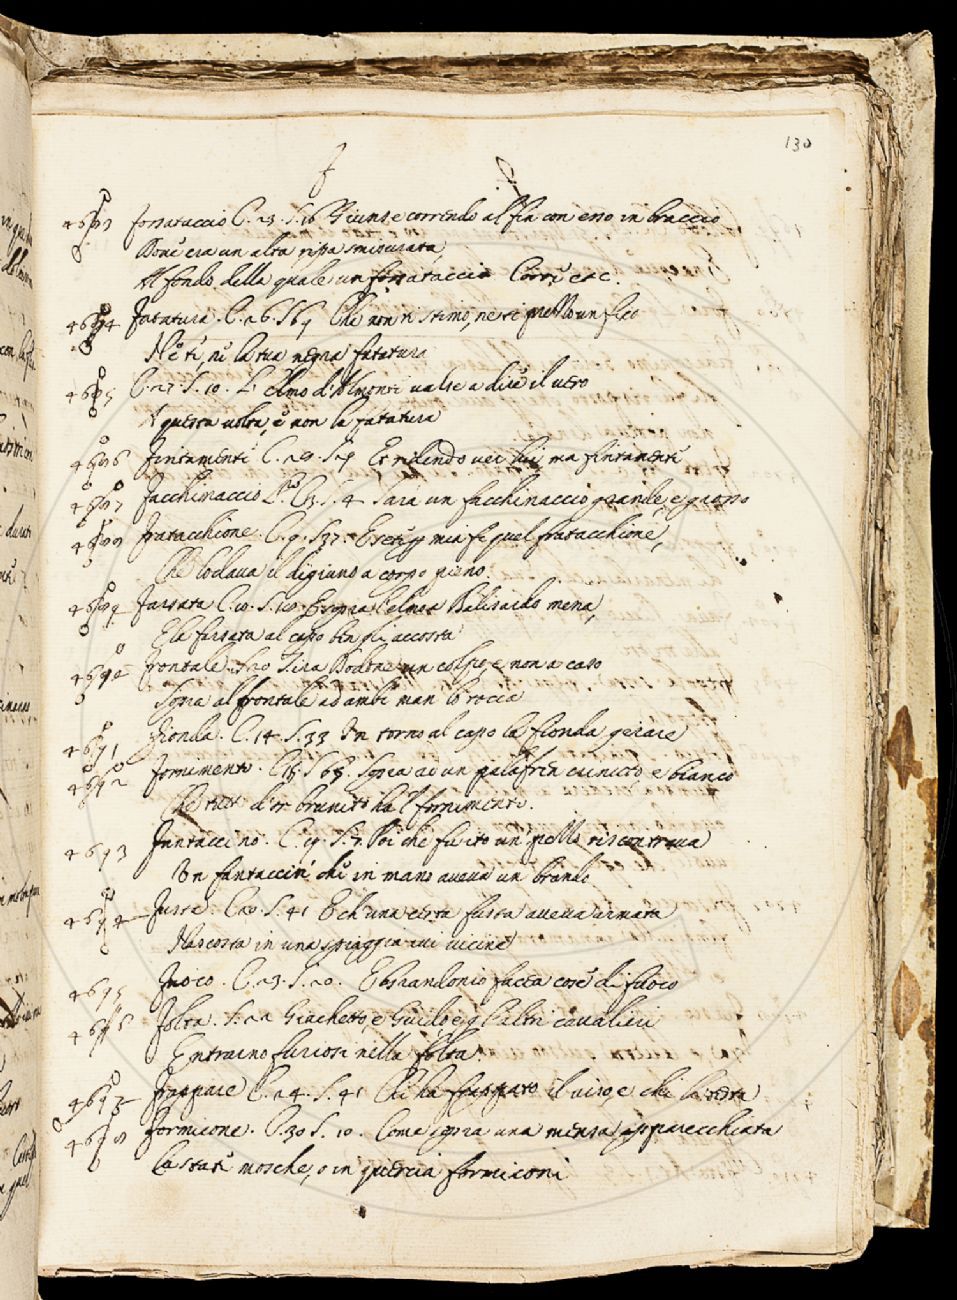 130
F
4683 Fossataccio C. 23. S. 16 Giunse correndo al fin con esso in braccio
Dove era un alta ripa smisurata,
Al fondo della quale un fossataccio Corr etc.
4684 Fatatura. C. 26. S. 69 Che non ti stimo, ne ti prezzo un fico
Nè tè, nè la tua negra fatatura
4685 C. 27. S. 10. L'elmo d'Almonte valse a dire il vero
A questa volta, e non la fatatura
4686 Fintamente C. 29. S. Et ridendo ver lui, ma fintamente
4687 Facchinaccio S. 4 Sara un facchinaccio grande, e grosso
4688 Fratacchione. C. 9. S. 37. mia fe quel fratacchione,
Che lodava il digiuno a corpo pieno.
4689 Farsata C. 10. S. Sopra l'elmo a Balisardo mena,
E la farsata al capo ben gli accosta
4690 Frontale. S. 20 Tira Dodone un colpo, e non a caso
Sopra al frontale ad ambe man lo tocca
4691 Fionda. C. 14. S. 33 In torno al capo la fionda girare
4692 Fornimento. Sopra ad un palafren e bianco
Che tutto d'or brunito ha 'l fornimento.
4693 Fantaccino. C. 19. S. 7. Poi che fu ito un pezzo riscontrava
Un fantaccin che in mano aveva un brando
4694 Fusta. C. 20. S. 41 E ch'una certa fusta aveva armata
Nascosta in una spiaggia ivi vicina
4695 Fuoco. C. 23. S. 20. facea cose di fuoco
4696 Folta. S. 22 Giachetto e Guido, e gl'altri cavalieri
Entraino furiosi nella folta.
4697 Frappare C. 24. S. 41 Chi ha frappato il viso, e chi la testa
4698 Formicone. C. 30 S. 10. Come sopra una mensa apparecchiata
La state mosche, o in quercia formiconi